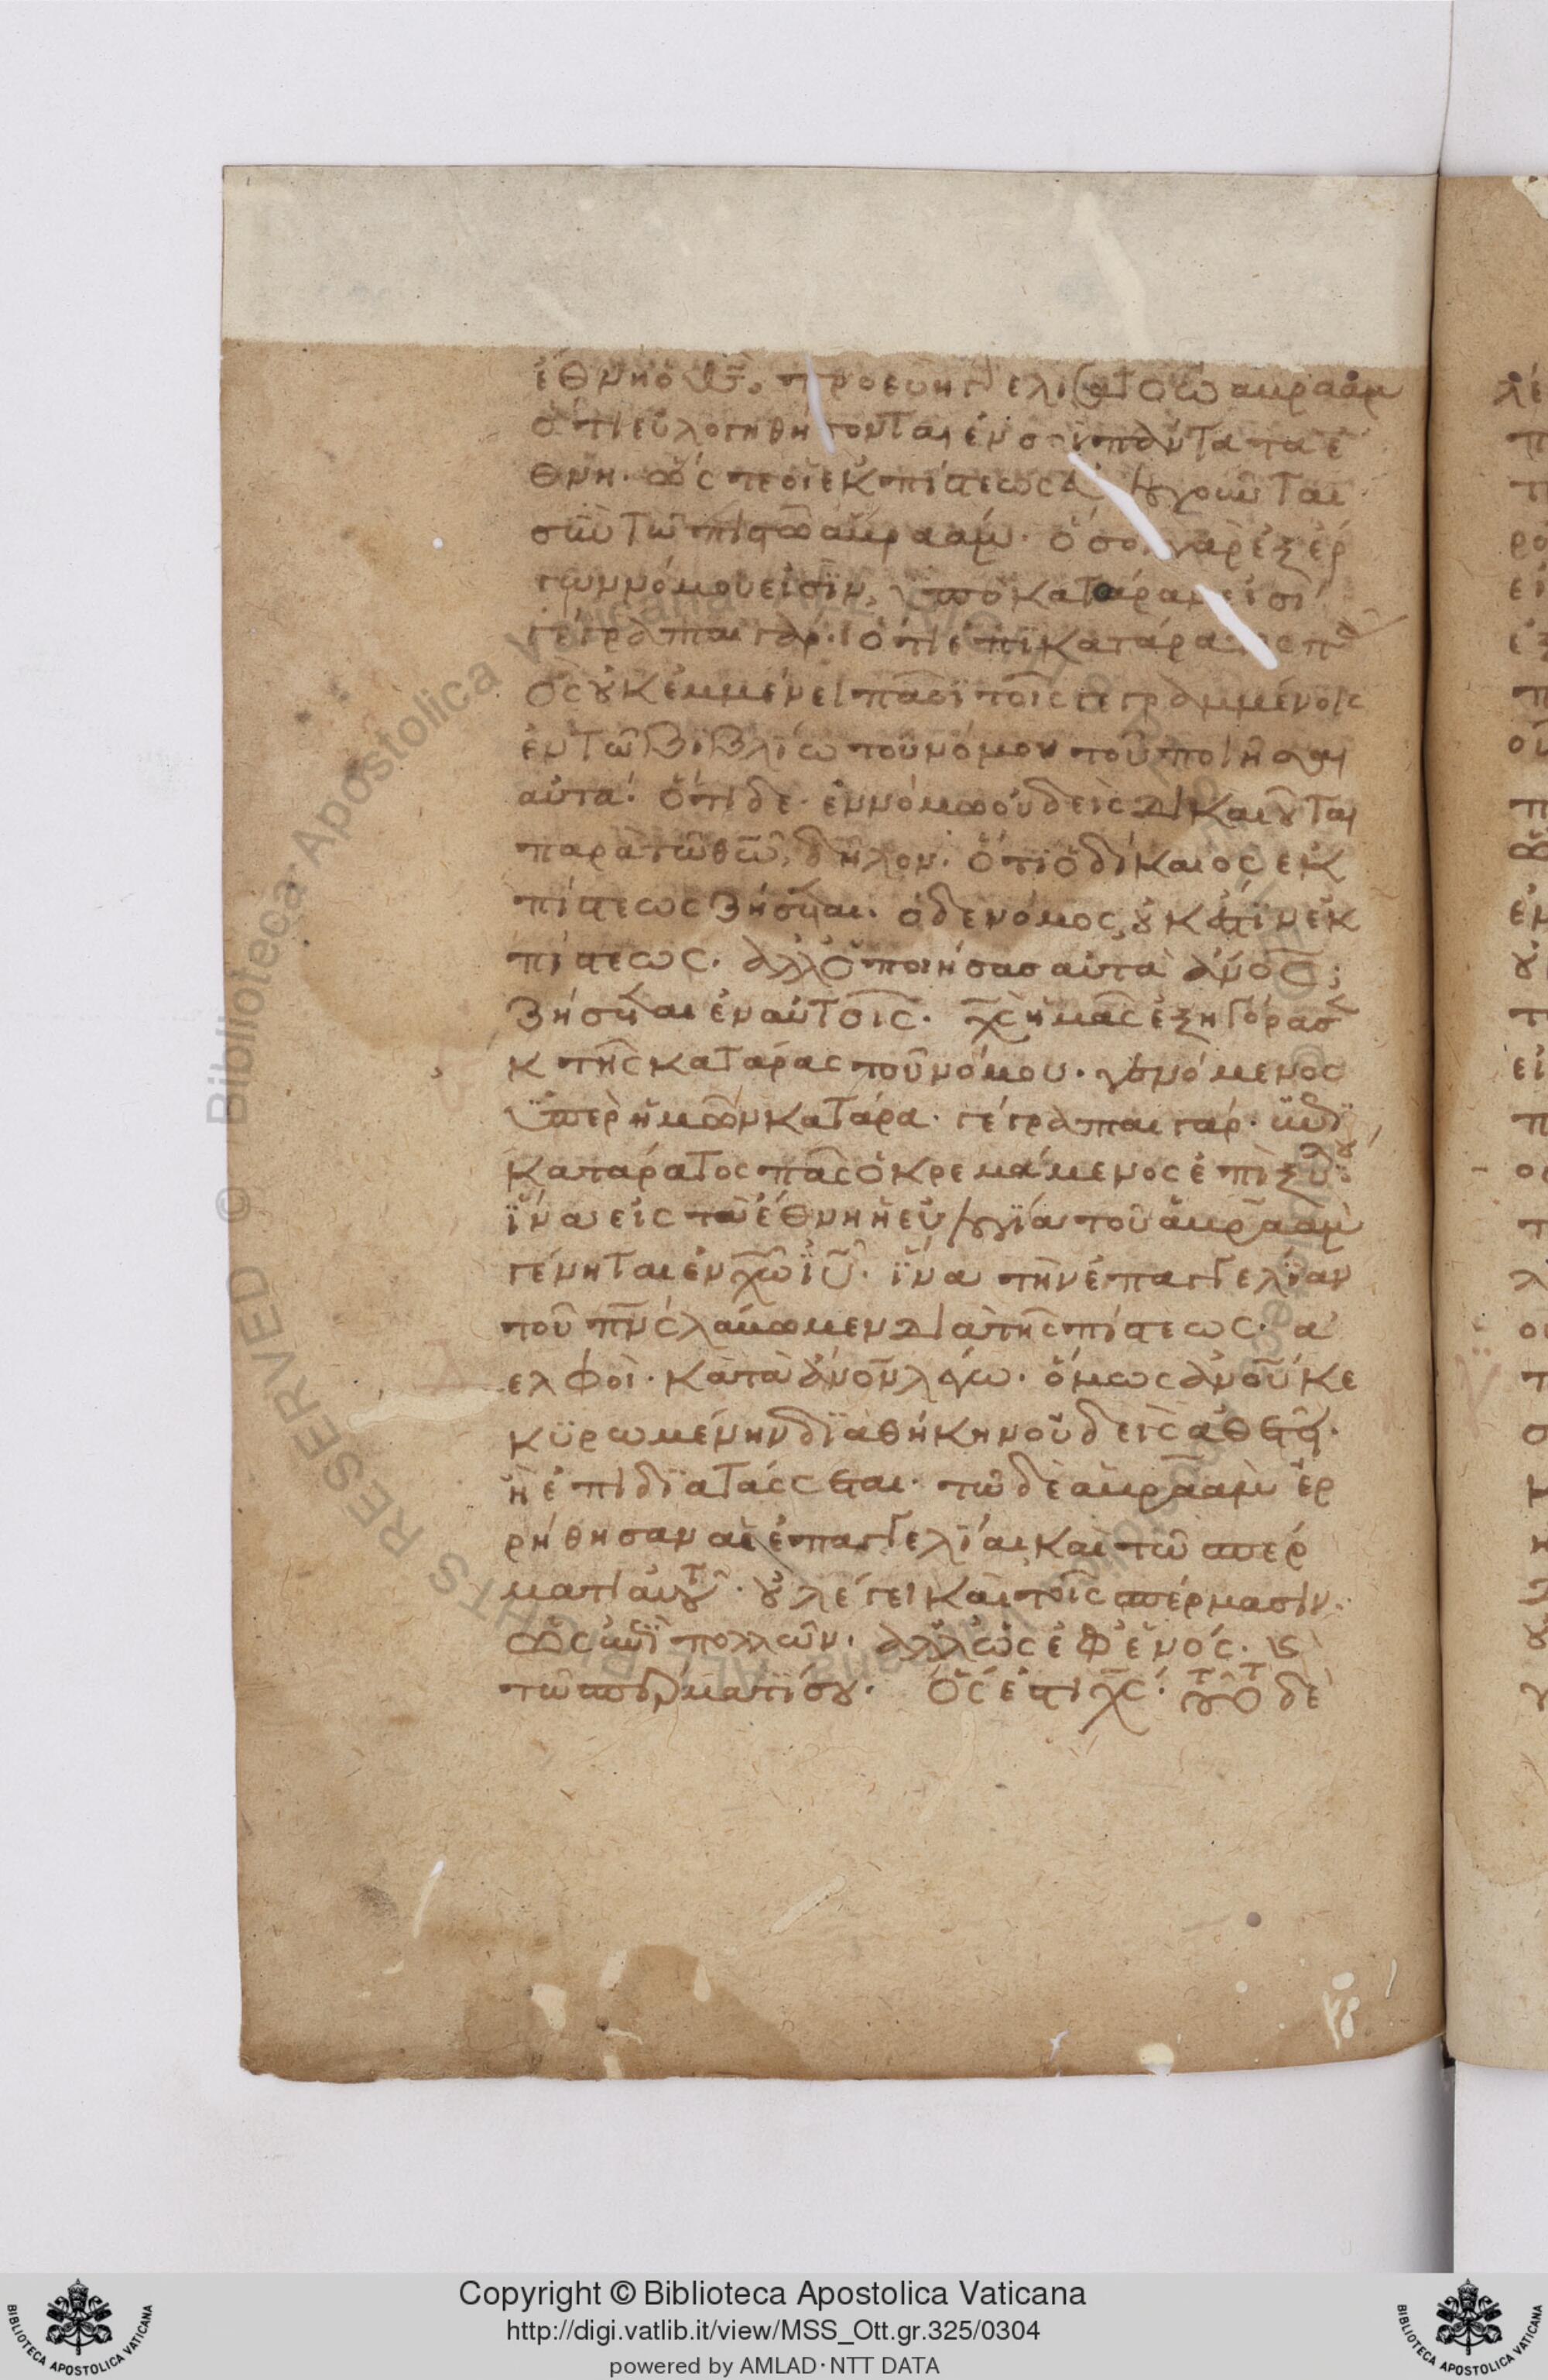 ἔθνη ὁ θς. προευηγγελίσατο τῶ ἀβραὰμ
ὅτι εὐλογηθήσονται ἐν σοὶ πάντα τα ἔ
θνη. ὥστε οἱ ἐκ πίστεως εὐλογοῦνται
σὺν τῶ πιστῶ ἀβραάμ. ὅσοι γὰρ ἐξ ἔρ
γων νόμου εἰσὶν, ὑπὸ κατάραν εἰσί
γέγραπται γάρ. ὅτι ἐπικατάρατος πᾶ
ὃς οὐκ ἐμμένει πᾶσι τοῖς γεγραμμένοις
ἐν τῶ βιβλίω τοῦ νόμου τοῦ ποιῆσαι
αὐτά. ὅτι δε ἐν νόμω οὐδεὶς δικαιοῦται
παρὰ τῶ θῶ, δῆλον. ὅτι ὁ δίκαιος ἐκ
πίστεως ζήσεται. ὁ δε νόμος, οὐκ ἔστιν ἐκ
πίστεως. ἀλλ ὁ ποιήσας αὐτὰ ανος;
ζήσεται ἐν αὐτοῖς. χς ἡμᾶς ἐξηγόρασεν
κ τῆς κατάρας τοῦ νόμου. γενόμενος
ὑπὲρ ἡμῶν κατάρα. γέγραπται γάρ. ἐπι
κατάρατος πᾶς ὁ κρεμάμενος ἐπὶ ξύλου
ἵνα εἰς τὰ ἔθνη ἡ εὐλογία τοῦ ἀβραὰμ
γένηται ἐν χω ιυ. ἵνα τὴν ἐπαγγελίαν
τοῦ πνς λάβωμεν διὰ τῆς πίστεως. α
ελφοὶ. κατὰ ανον λέγω. ὅμως ανου κε
κυρωμένην διαθήκην οὐδεὶς ἀθετεῖ.
ἢ ἐπιδιατάσσεται. τῶ δὲ ἀβραὰμ ἐρ
ρήθησαν αἱ ἐπαγγελίαι καὶ τῶ σπέρ
ματι αὐτοῦ. οὐ λέγει καὶ τοῖς σπέρμασιν.
ὡς ἐπὶ πολλῶν. ἀλλ ὡς ἐφ ἑνός. καὶ
τῶ σπέρματί σου. ὅς ἐστι χς. τοῦτο δὲ
Copyright © Biblioteca Apostolica Vaticana
http://digi.vatlib.it/view/MSS_Ott.gr.325/0304
powered by AMLAD·NTT DATA